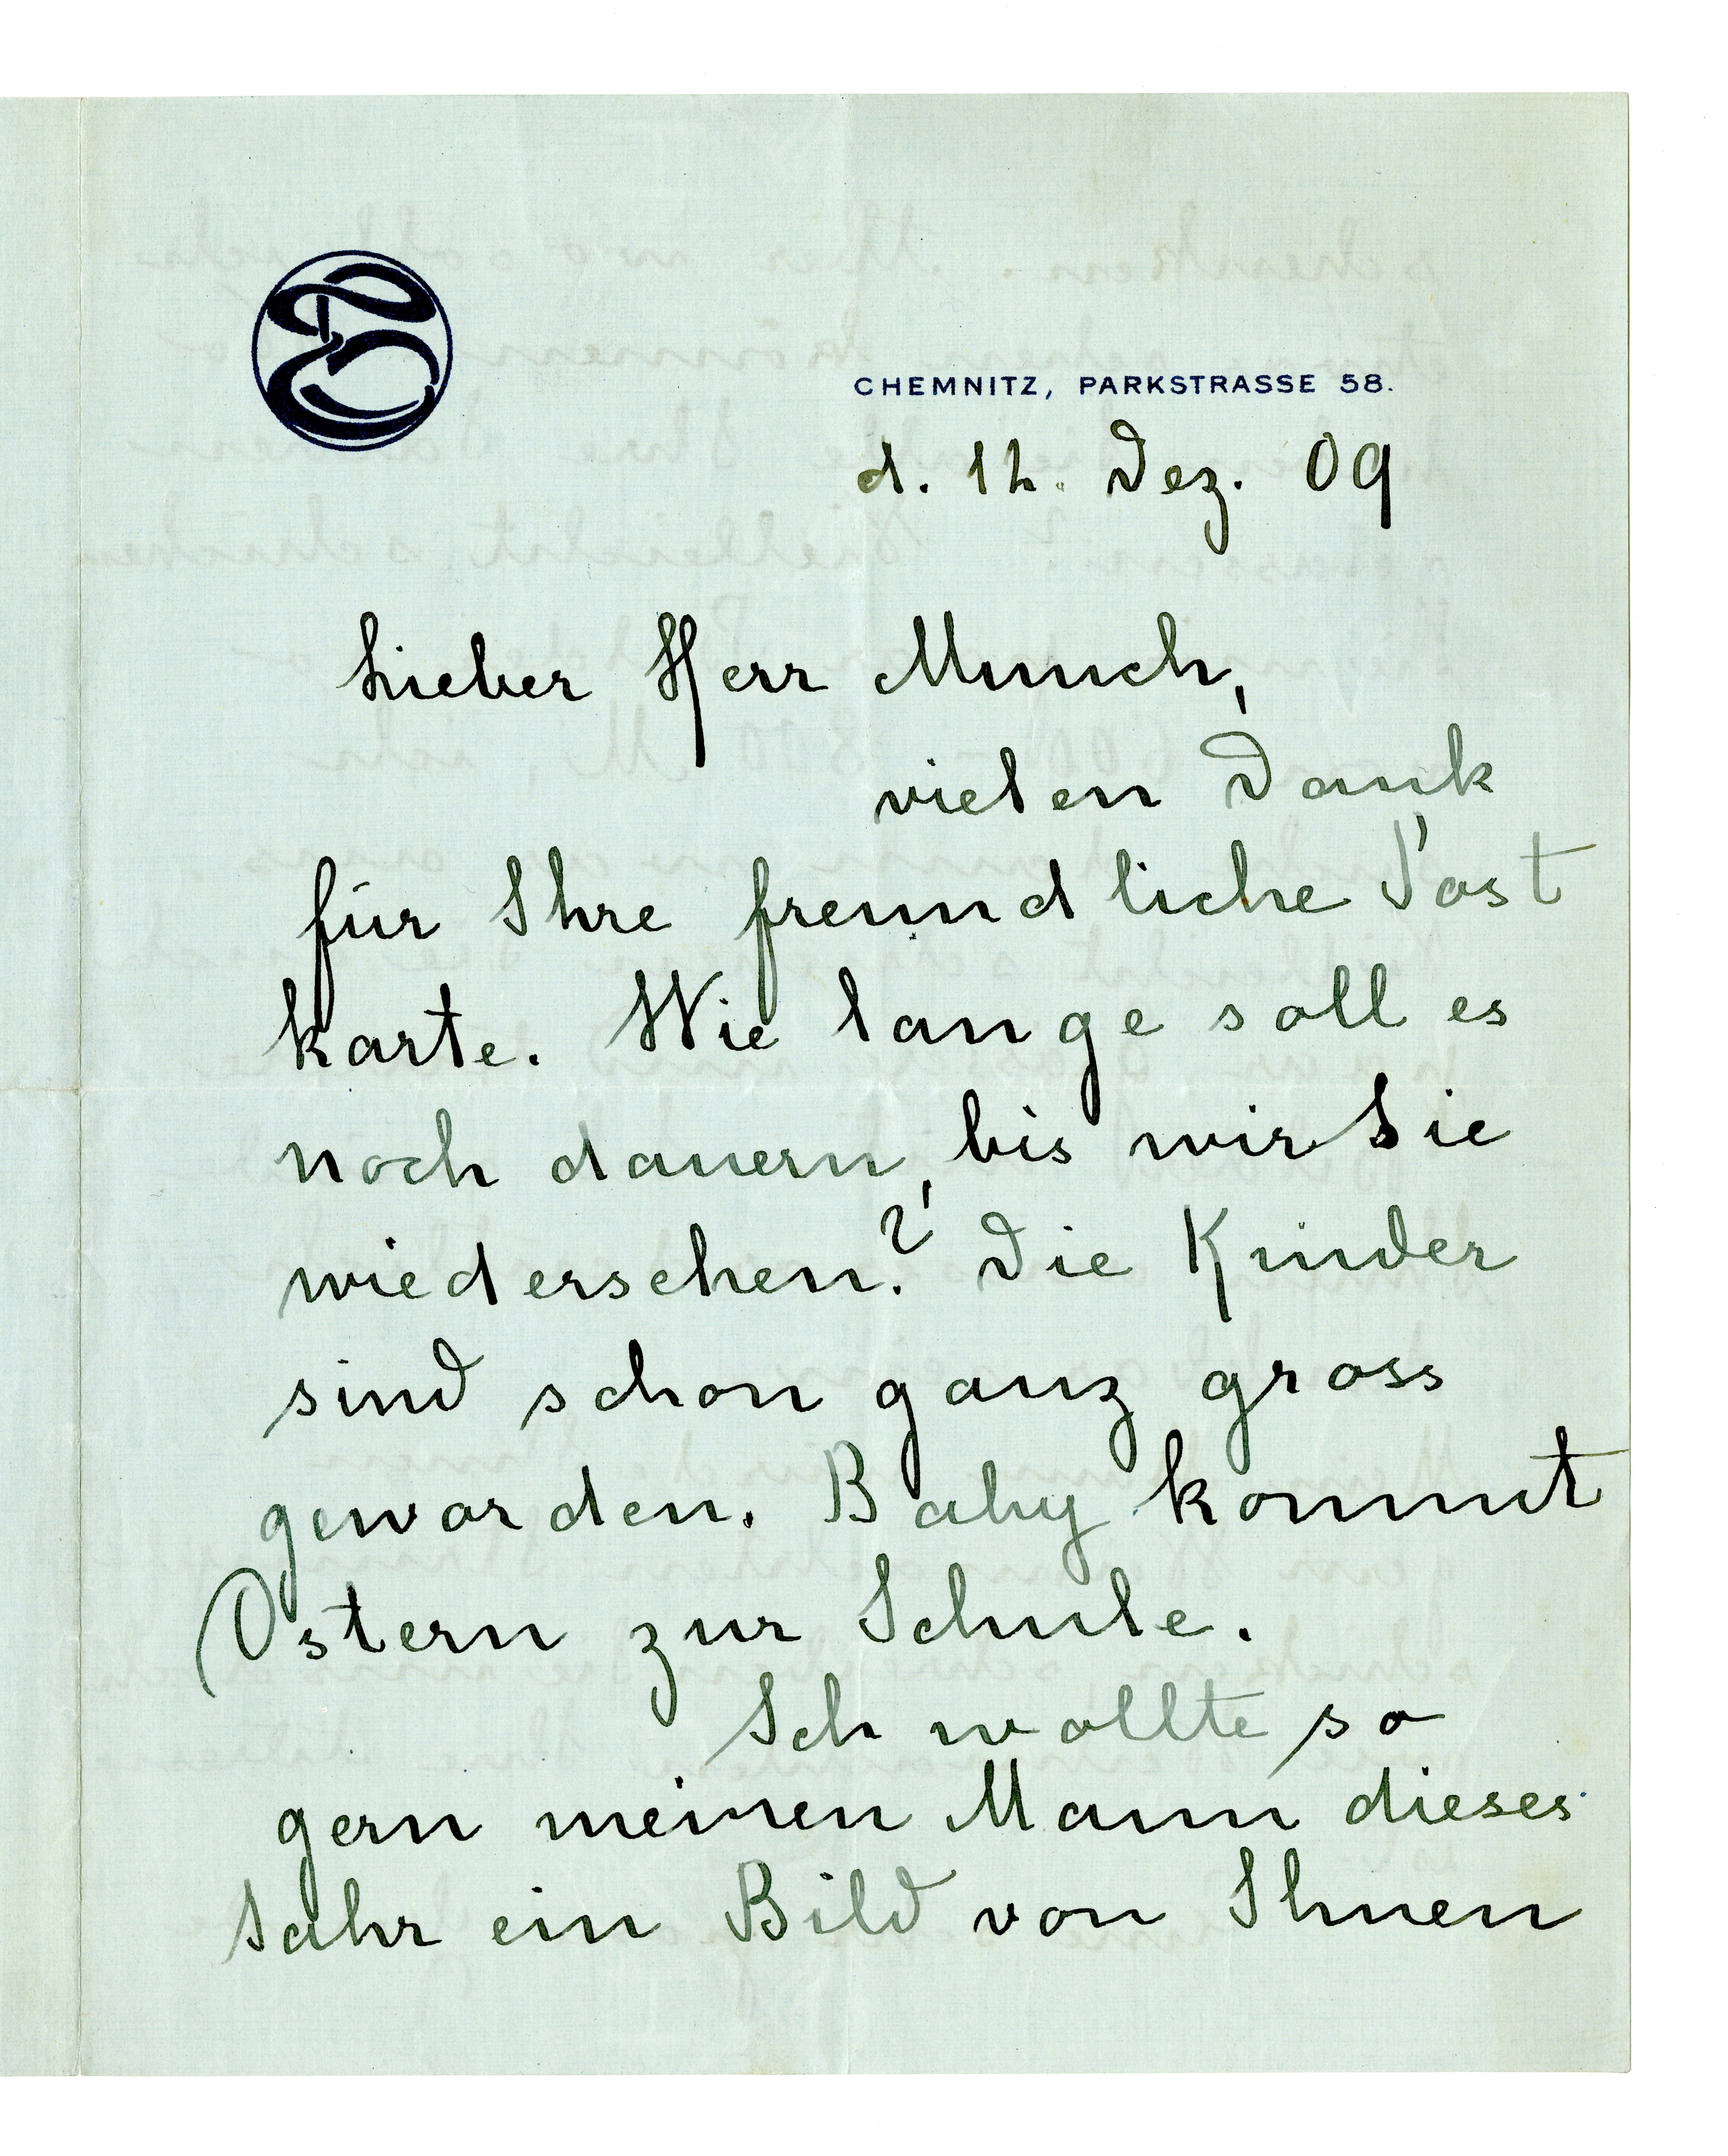 CHEMNITZ, PARKSTRASSE 58.
d. 12. Dez. 09
Lieber Herr Munch,
vielen Dank
für Ihre freundliche Post
karte. Wie lange soll es
noch dauern, bis wir Sie
wiedersehen? Die Kinder
sind schon ganz gross
geworden. Baby kommt
Ostern zur Schule.
Ich wollte so
gern meinen Mann dieses
Jahr ein Bild von Ihnen